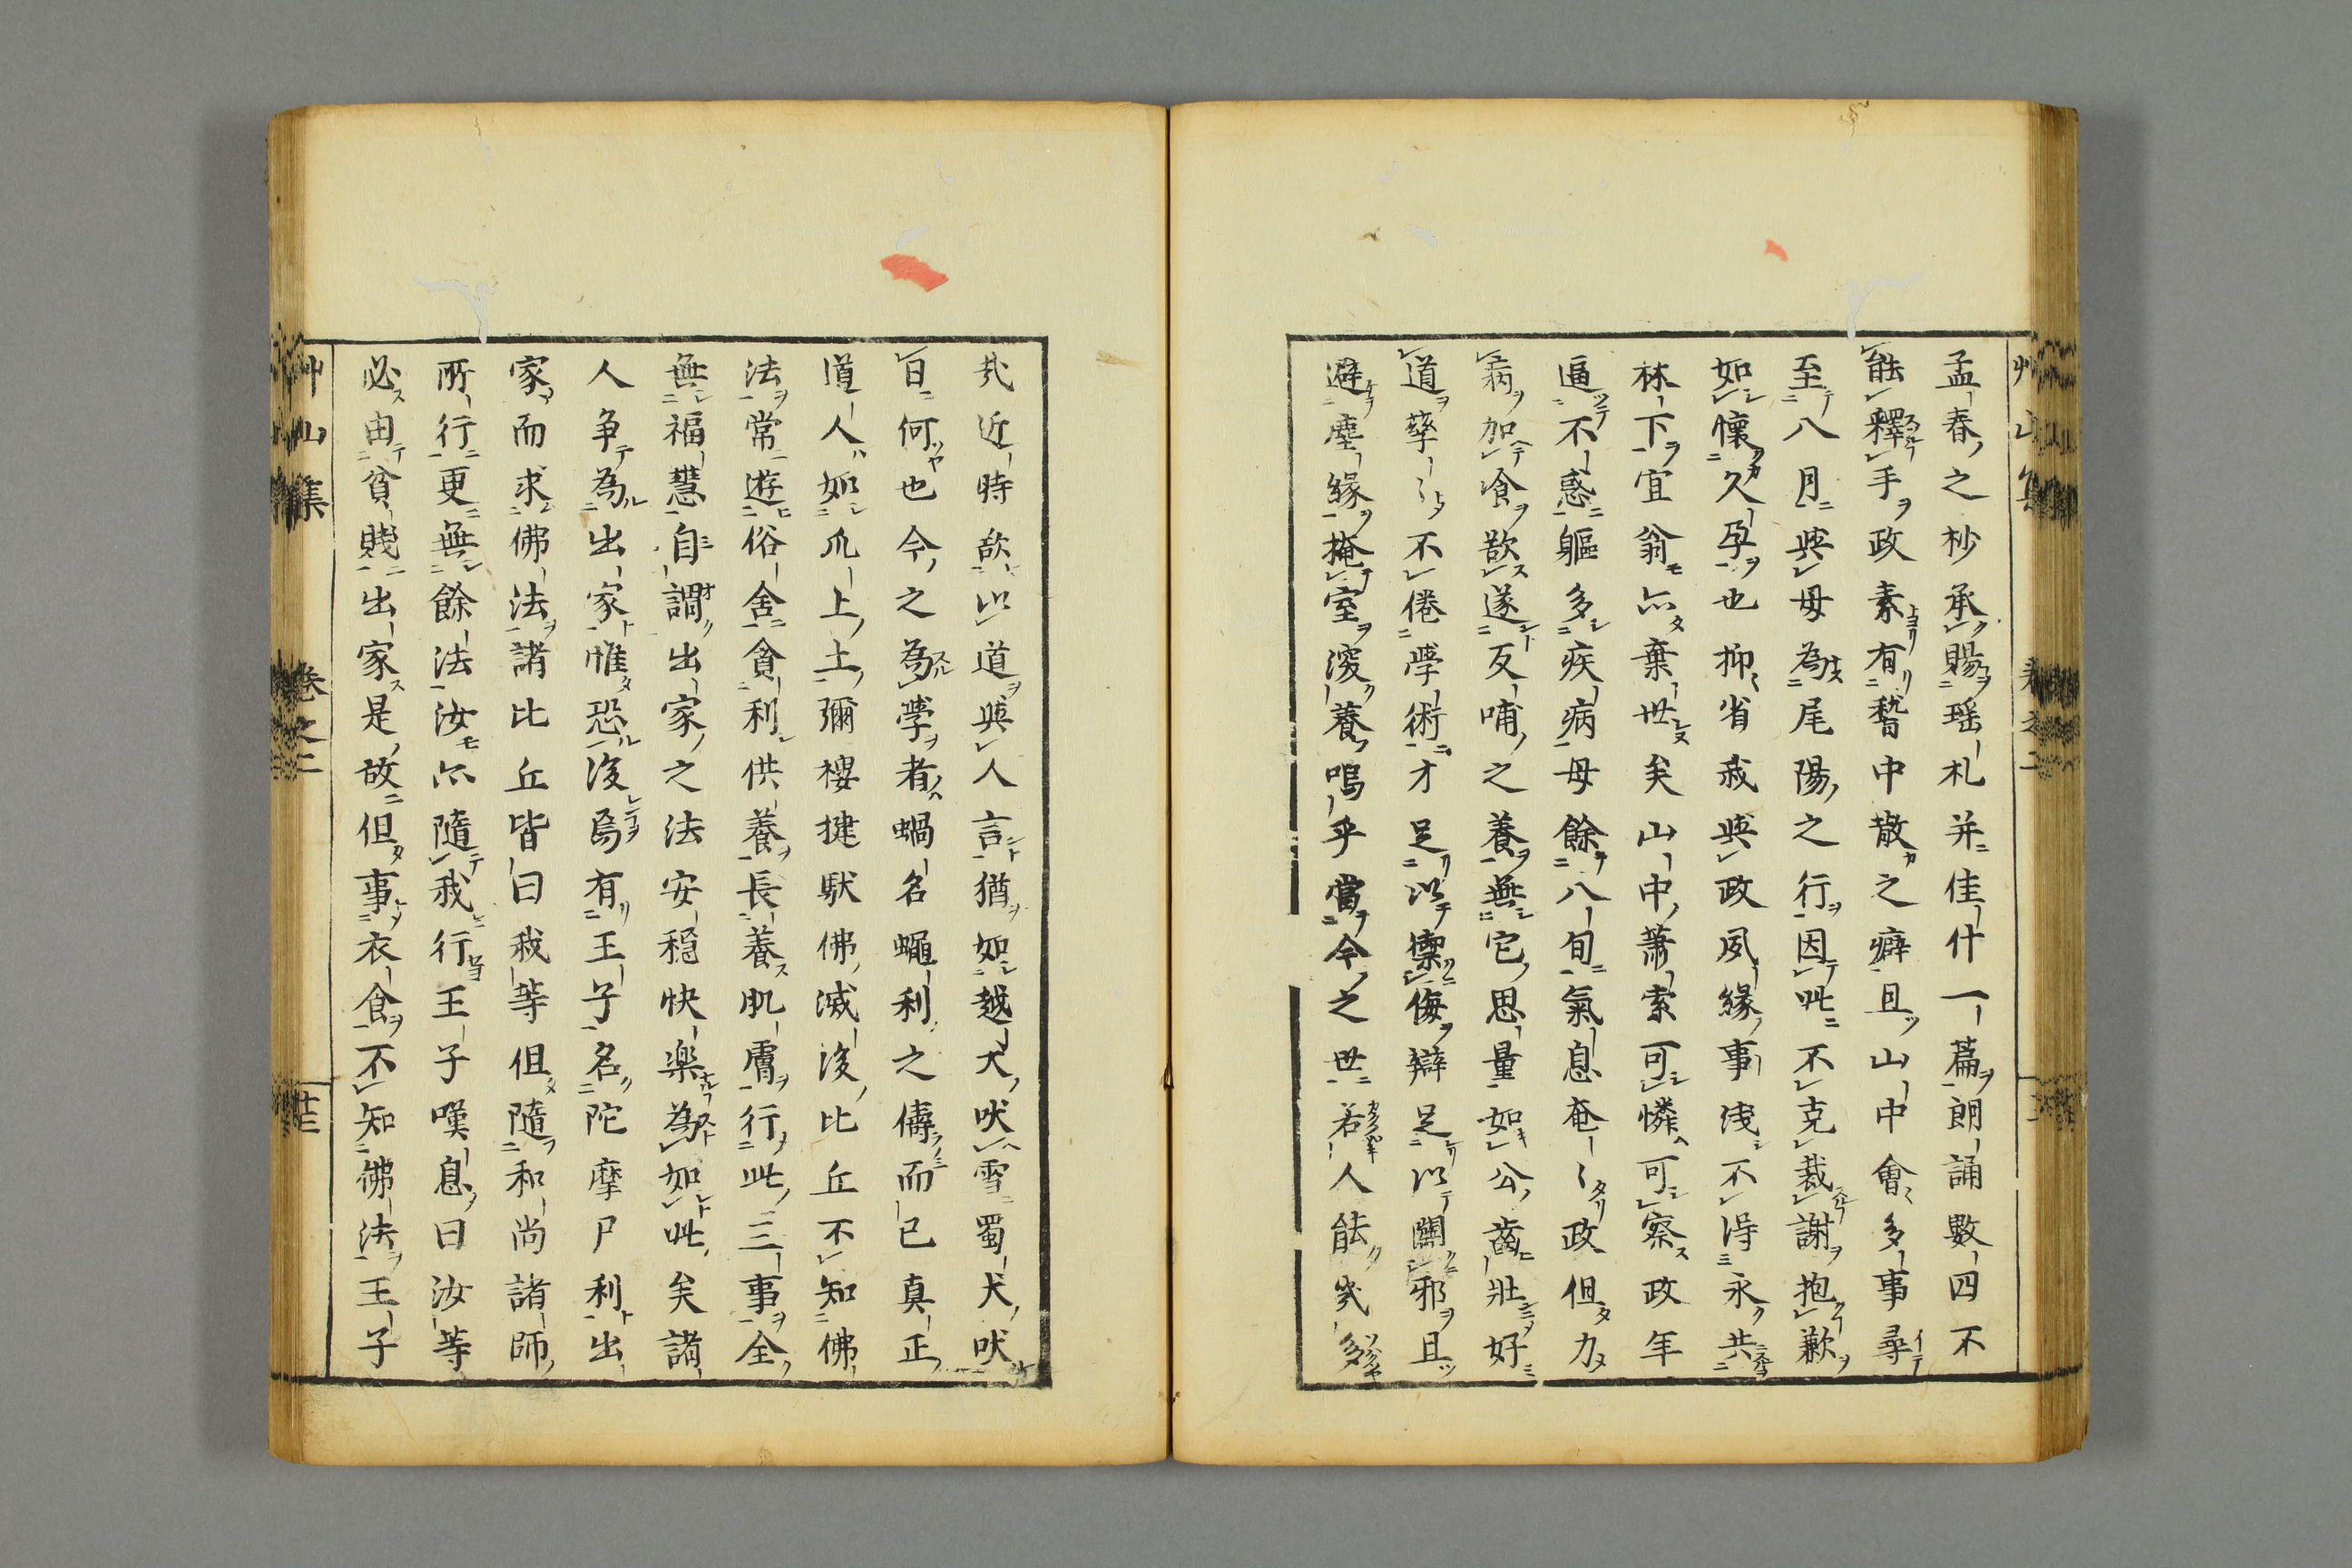 孟春之杪承賜瑶札并佳什一篇朗誦數四不
能釋手政素有嵆中散之癖且山中會多事尋
至八月與母為尾陽之行因玆不克裁謝抱歉
如懷久孕也抑省我與政夙緣事淺不得永共
林下宜翁亦棄世矣山中蕭索可憐可察政年
逼不惑軀多疾病母餘八旬氣息奄〻政但力
病加飡欲遂反哺之養無它思量如公齒壯好
道孳〻不倦學術才足以禦侮辯足以闢邪且
避塵緣掩室深養嗚乎當今之世若人能幾多
哉近時欲以道與人言猶如越犬吠雪蜀犬吠
日何也今之為學者蝸名蠅利之儔而已真正
道人如爪上土彌樓揵馱佛滅後比丘不知佛
法常遊俗舍貪利供養長養肌膚行此三事全
無福慧自謂出家之法安穩快樂為如此矣諸
人爭為出家惟恐後焉有王子名陀摩尸利出
家而求佛法諸比丘皆曰我等但隨和尚諸師
所行更無餘法汝亦隨我行王子嘆息曰汝等
必由貧賤出家是故但事衣食不知佛法王子
艸山集 卷之二 廿二